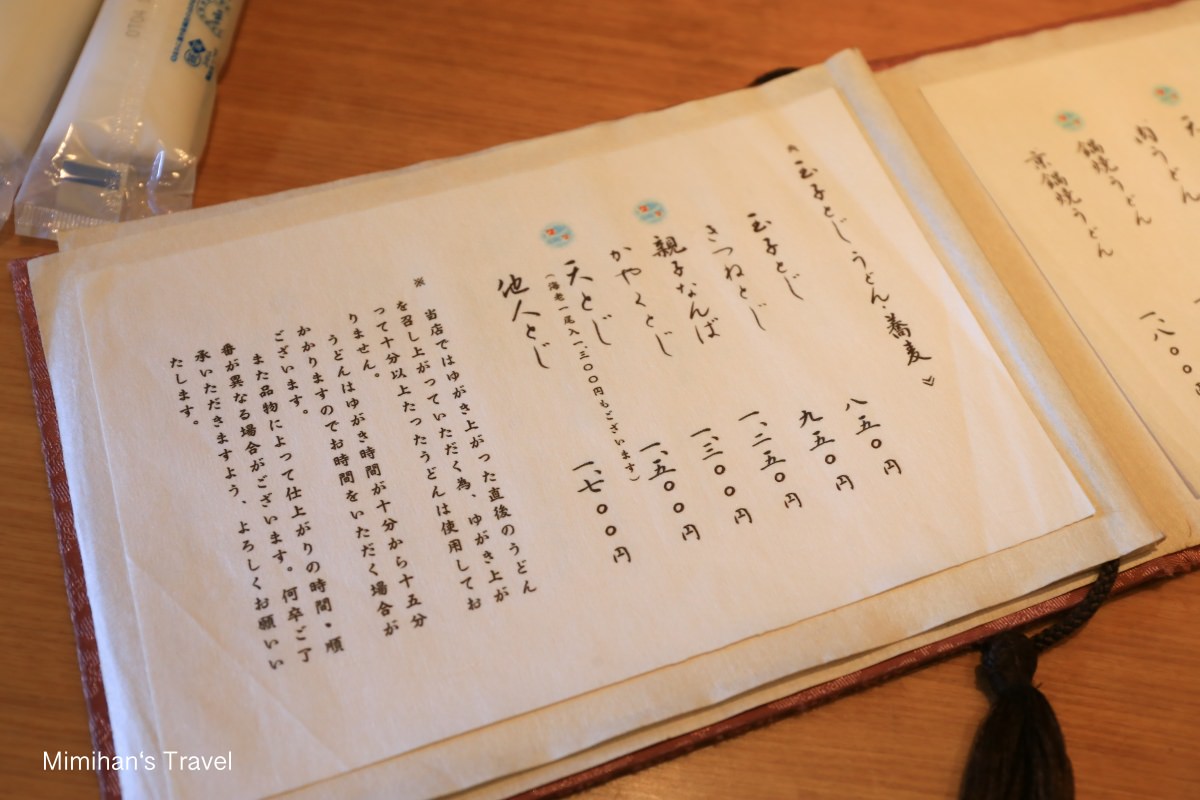 肉うどん
鍋焼うどん
京鍋焼うどん
一、八〇〇
≪ 玉子とじうどん・蕎麦 ≫
玉子とじ 八五〇円
きつねとじ 九五〇円
親子なんば 一、二五〇円
かやくとじ 一、三〇〇円
天とじ 一、五〇〇円
(海老一尾入一、三〇〇円もございます)
他人とじ 一、七〇〇円
※ 当店ではゆがき上がった直後のうどん
を召し上がっていただく為、ゆがき上が
って十分以上たったうどんは使用してお
りません。
うどんはゆがき時間が十分から十五分
かかりますのでお時間をいただく場合が
ございます。
また品物によって仕上がりの時間・順
番が異なる場合がございます。何卒ご了
承いただきますよう、よろしくお願いい
たします。
Mimihan's Travel